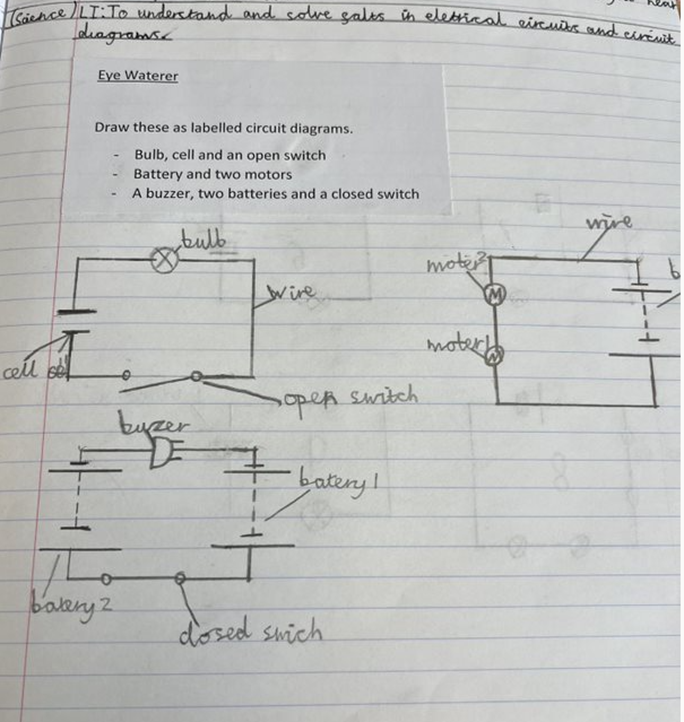 (Science) LI: To understand and solve galts in eletrical circuits and circuit
diagrams.
Eye Waterer
Draw these as labelled circuit diagrams.
- Bulb, cell and an open switch
- Battery and two motors
- A buzzer, two batteries and a closed switch
bulb
wire
cell
open switch
wire
moter2
M
b
moter1
M
buzer
batery1
batery2
closed swich